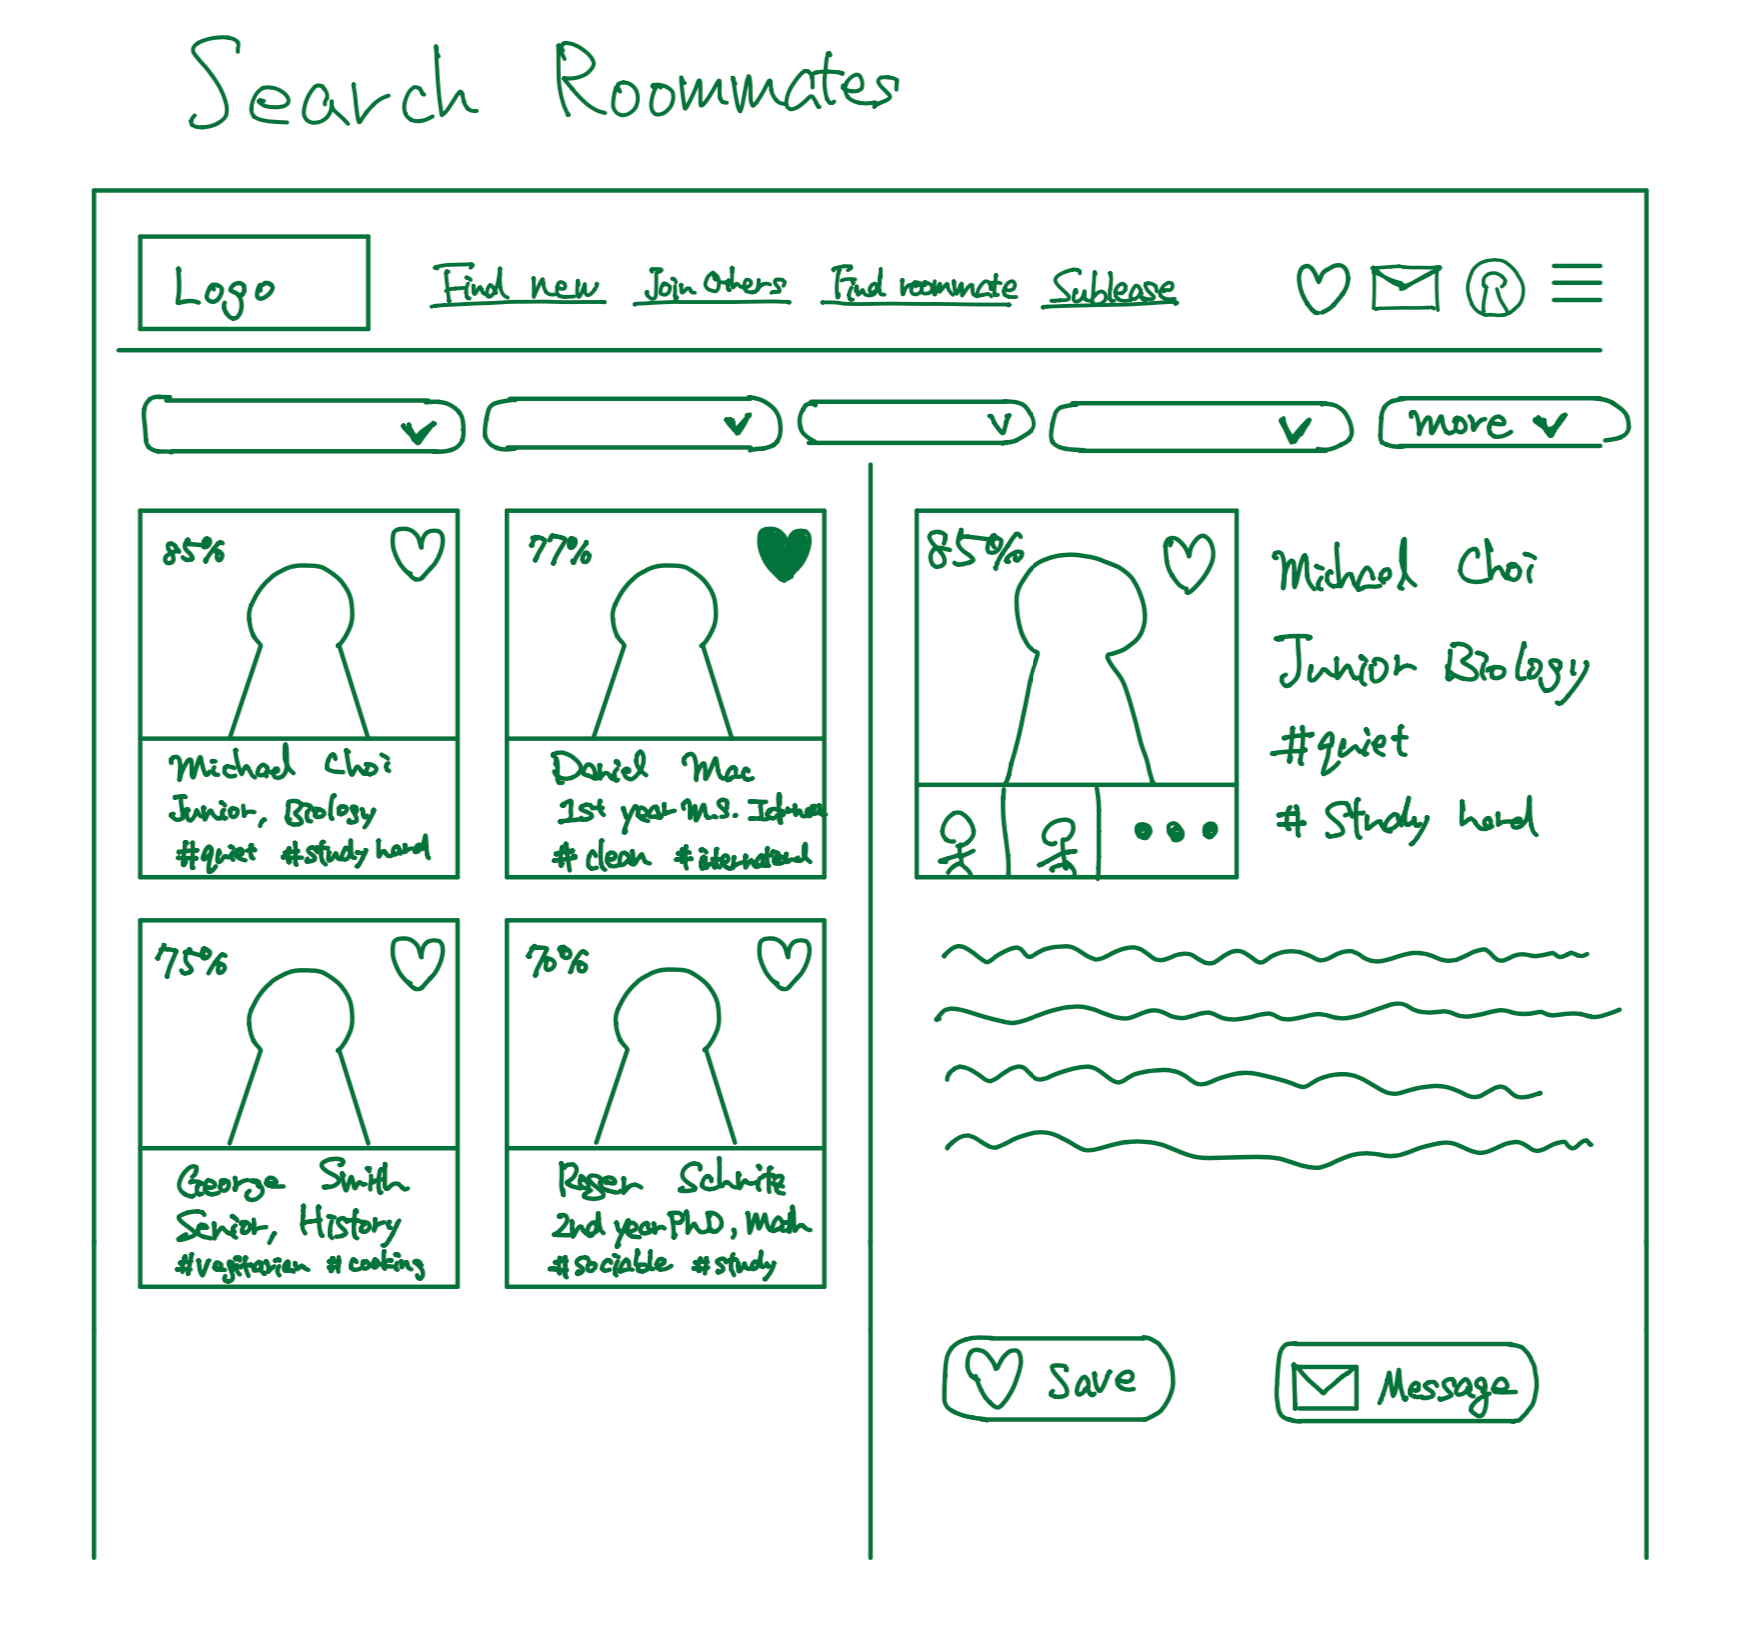 Search Roommates
Logo
Find new
Join Others
Find roommate
Sublease
more
85%
Michael Choi
Junior, Biology
#quiet #study hard
77%
Daniel Mac
1st year M.S.
#clean #iternational
75%
George Smith
Senior, History
#vegitarian #cooking
70%
Roger
2nd year PhD, Math
#sociable #study
85%
Michael Choi
Junior Biology
#quiet
# Study hard
Save
Message